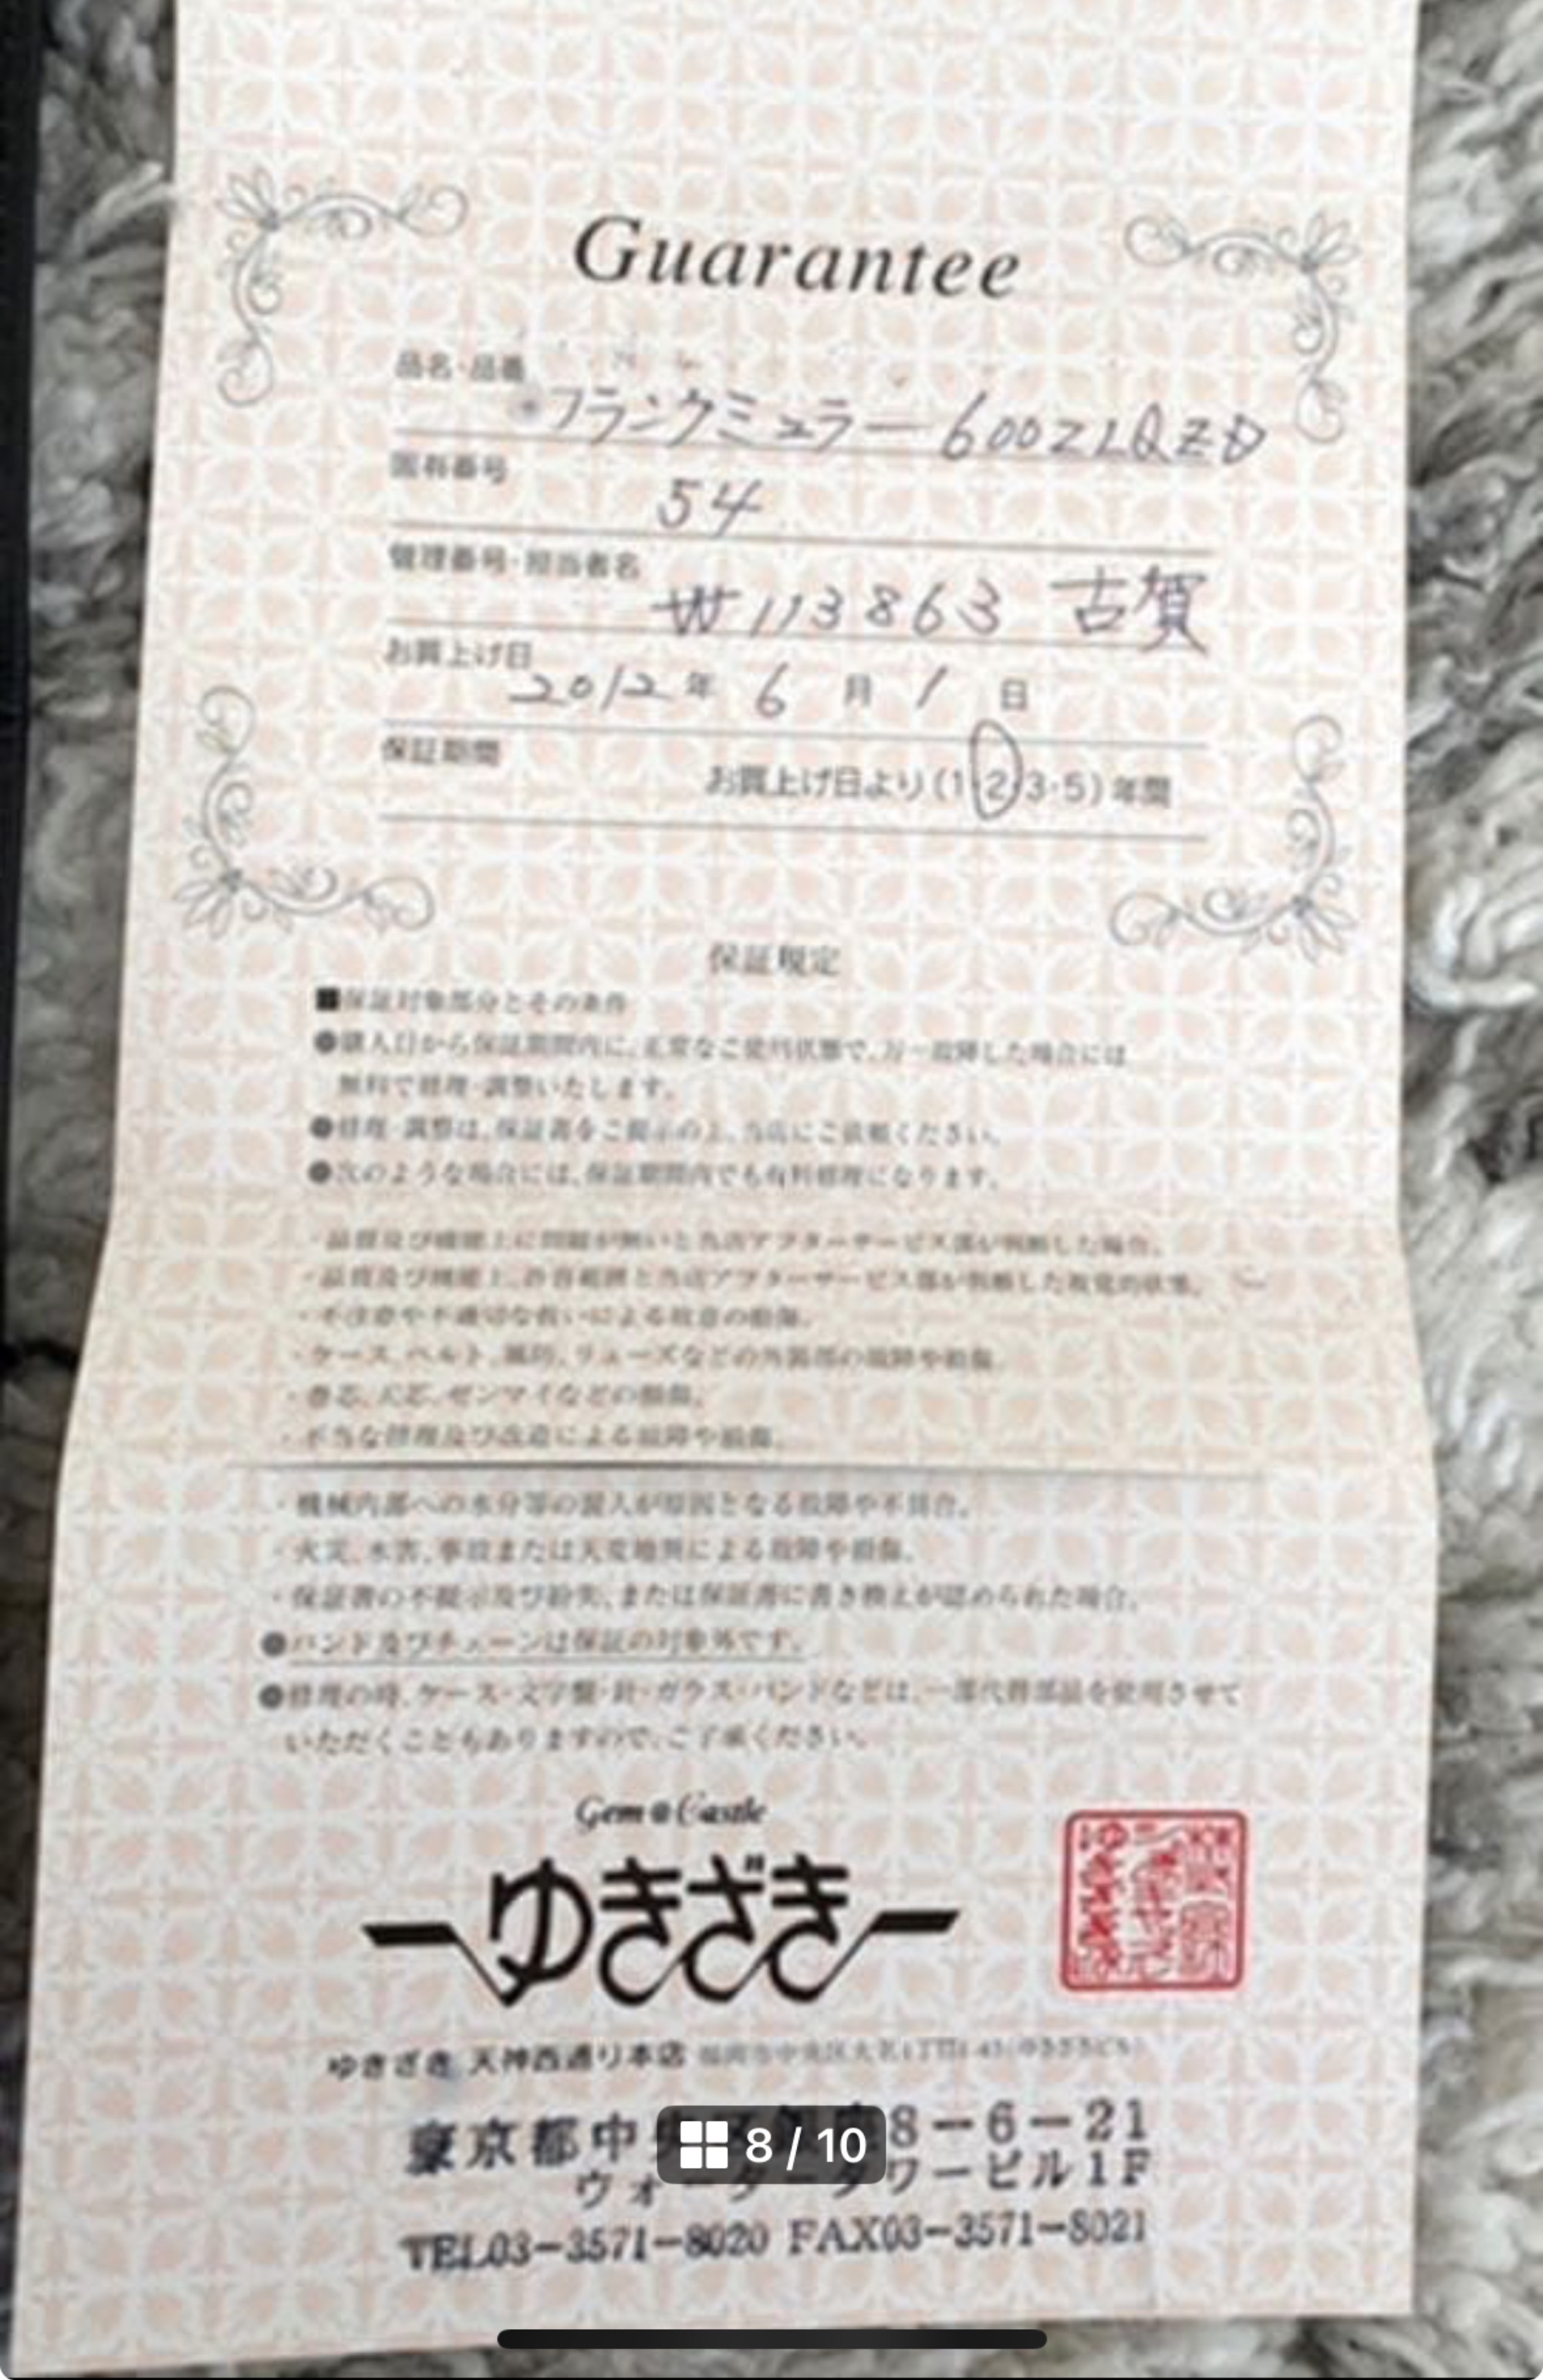 Guarantee
品名・品番
フランクミュラー 600ZLQZD
固有番号
54
管理番号・担当者名
W113863 古賀
お買上げ日
2012年 6月 1日
保証期間
お買上げ日より(1・2・3・5)年間
保証規定
■保証対象部分とその条件
●購入日から保証期間内に、正常なご使用状態で、万一故障した場合には
無料で修理・調整いたします。
●修理・調整は、保証書をご提示の上、当店にご依頼ください。
●次のような場合には、保証期間内でも有料修理になります。
・品質及び機能上に問題が無いと当店アフターサービス部が判断した場合。
・品質及び機能上、許容範囲と当店アフターサービス部が判断した視覚的状態。
・不注意や不適切な扱いによる故意の損傷。
・ケース、ベルト、風防、リューズなどの外装部の故障や損傷。
・巻芯、天芯、ゼンマイなどの損傷。
・不当な修理及び改造による故障や損傷。
・機械内部への水分等の混入が原因となる故障や不具合。
・火災、水害、事故または天変地異による故障や損傷。
・保証書の不提示及び紛失、または保証書に書き換えが認められた場合。
●バンド及びチェーンは保証の対象外です。
●修理の時、ケース・文字盤・針・ガラス・バンドなどは、一部代替部品を使用させて
いただくこともありますので、ご了承ください。
Gem Castle
ゆきざき
ゆきざき 天神西通り本店
東京都中 8-6-21
ワービル1F
TEL03-3571-8020 FAX03-3571-8021
8 / 10